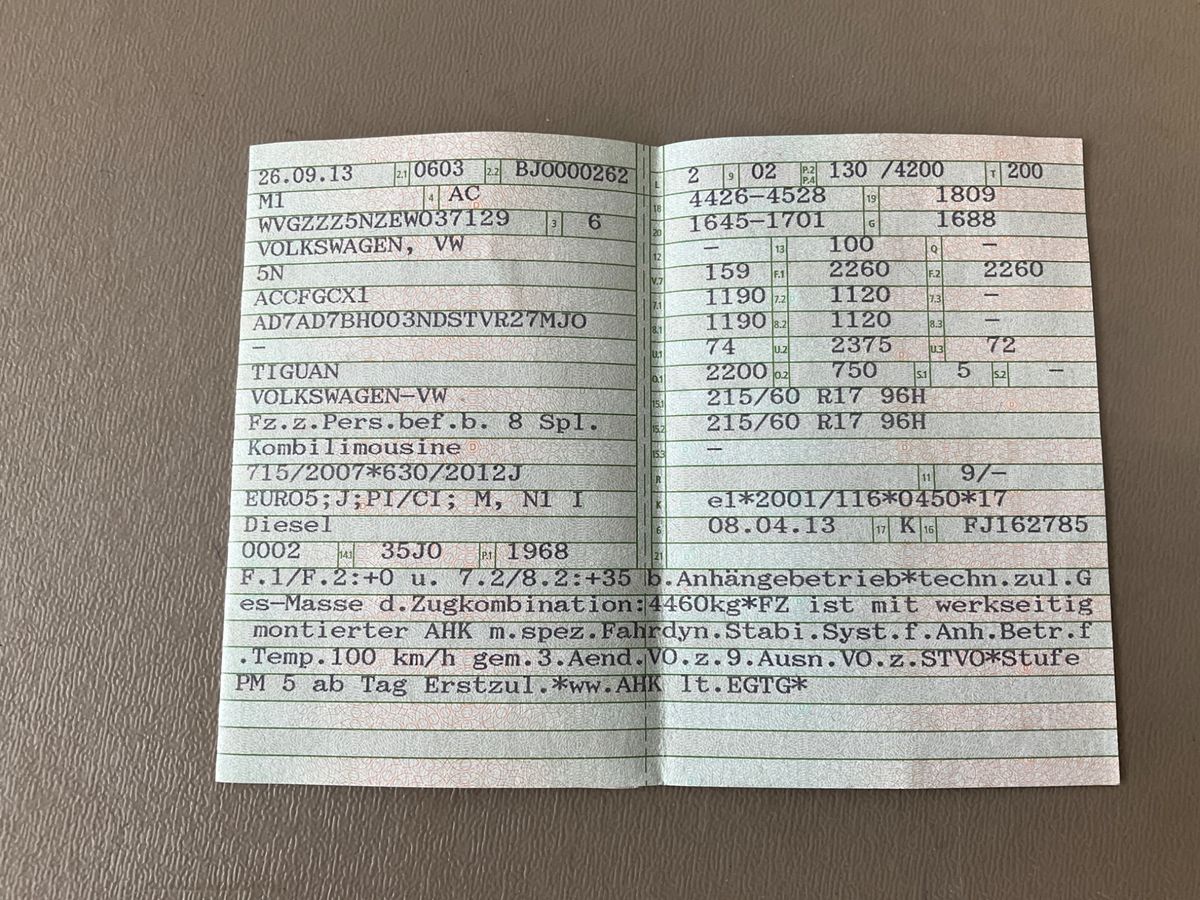 26.09.13 2.1 0603 2.2 BJO000262
M1 4 AC
WVGZZZ5NZEW037129 3 6
VOLKSWAGEN, VW
5N
ACCFGCX1
AD7AD7BH003NDSTVR27MJO
–
TIGUAN
VOLKSWAGEN–VW
Fz.z.Pers.bef.b. 8 Spl.
Kombilimousine
715/2007*630/2012J
EURO5;J;PI/CI; M, N1 I
Diesel
0002 14.1 35J0 P.1 1968
L 2 9 02 P.2 P.4 130 /4200 T 200
18 4426–4528 19 1809
20 1645–1701 G 1688
12 – 13 100 Q –
V.7 159 F.1 2260 F.2 2260
7.1 1190 7.2 1120 7.3 –
8.1 1190 8.2 1120 8.3 –
U.1 74 U.2 2375 U.3 72
O.1 2200 O.2 750 S.1 5 S.2 –
15.1 215/60 R17 96H
15.2 215/60 R17 96H
15.3 –
R 11 9/–
K e1*2001/116*0450*17
6 08.04.13 17 K 16 FJ162785
21
F.1/F.2:+0 u. 7.2/8.2:+35 b.Anhängebetrieb*techn.zul.G
es–Masse d.Zugkombination:4460kg*FZ ist mit werkseitig
montierter AHK m.spez.Fahrdyn.Stabi.Syst.f.Anh.Betr.f
.Temp.100 km/h gem.3.Aend.VO.z.9.Ausn.VO.z.STVO*Stufe
PM 5 ab Tag Erstzul.*ww.AHK lt.EGTG*